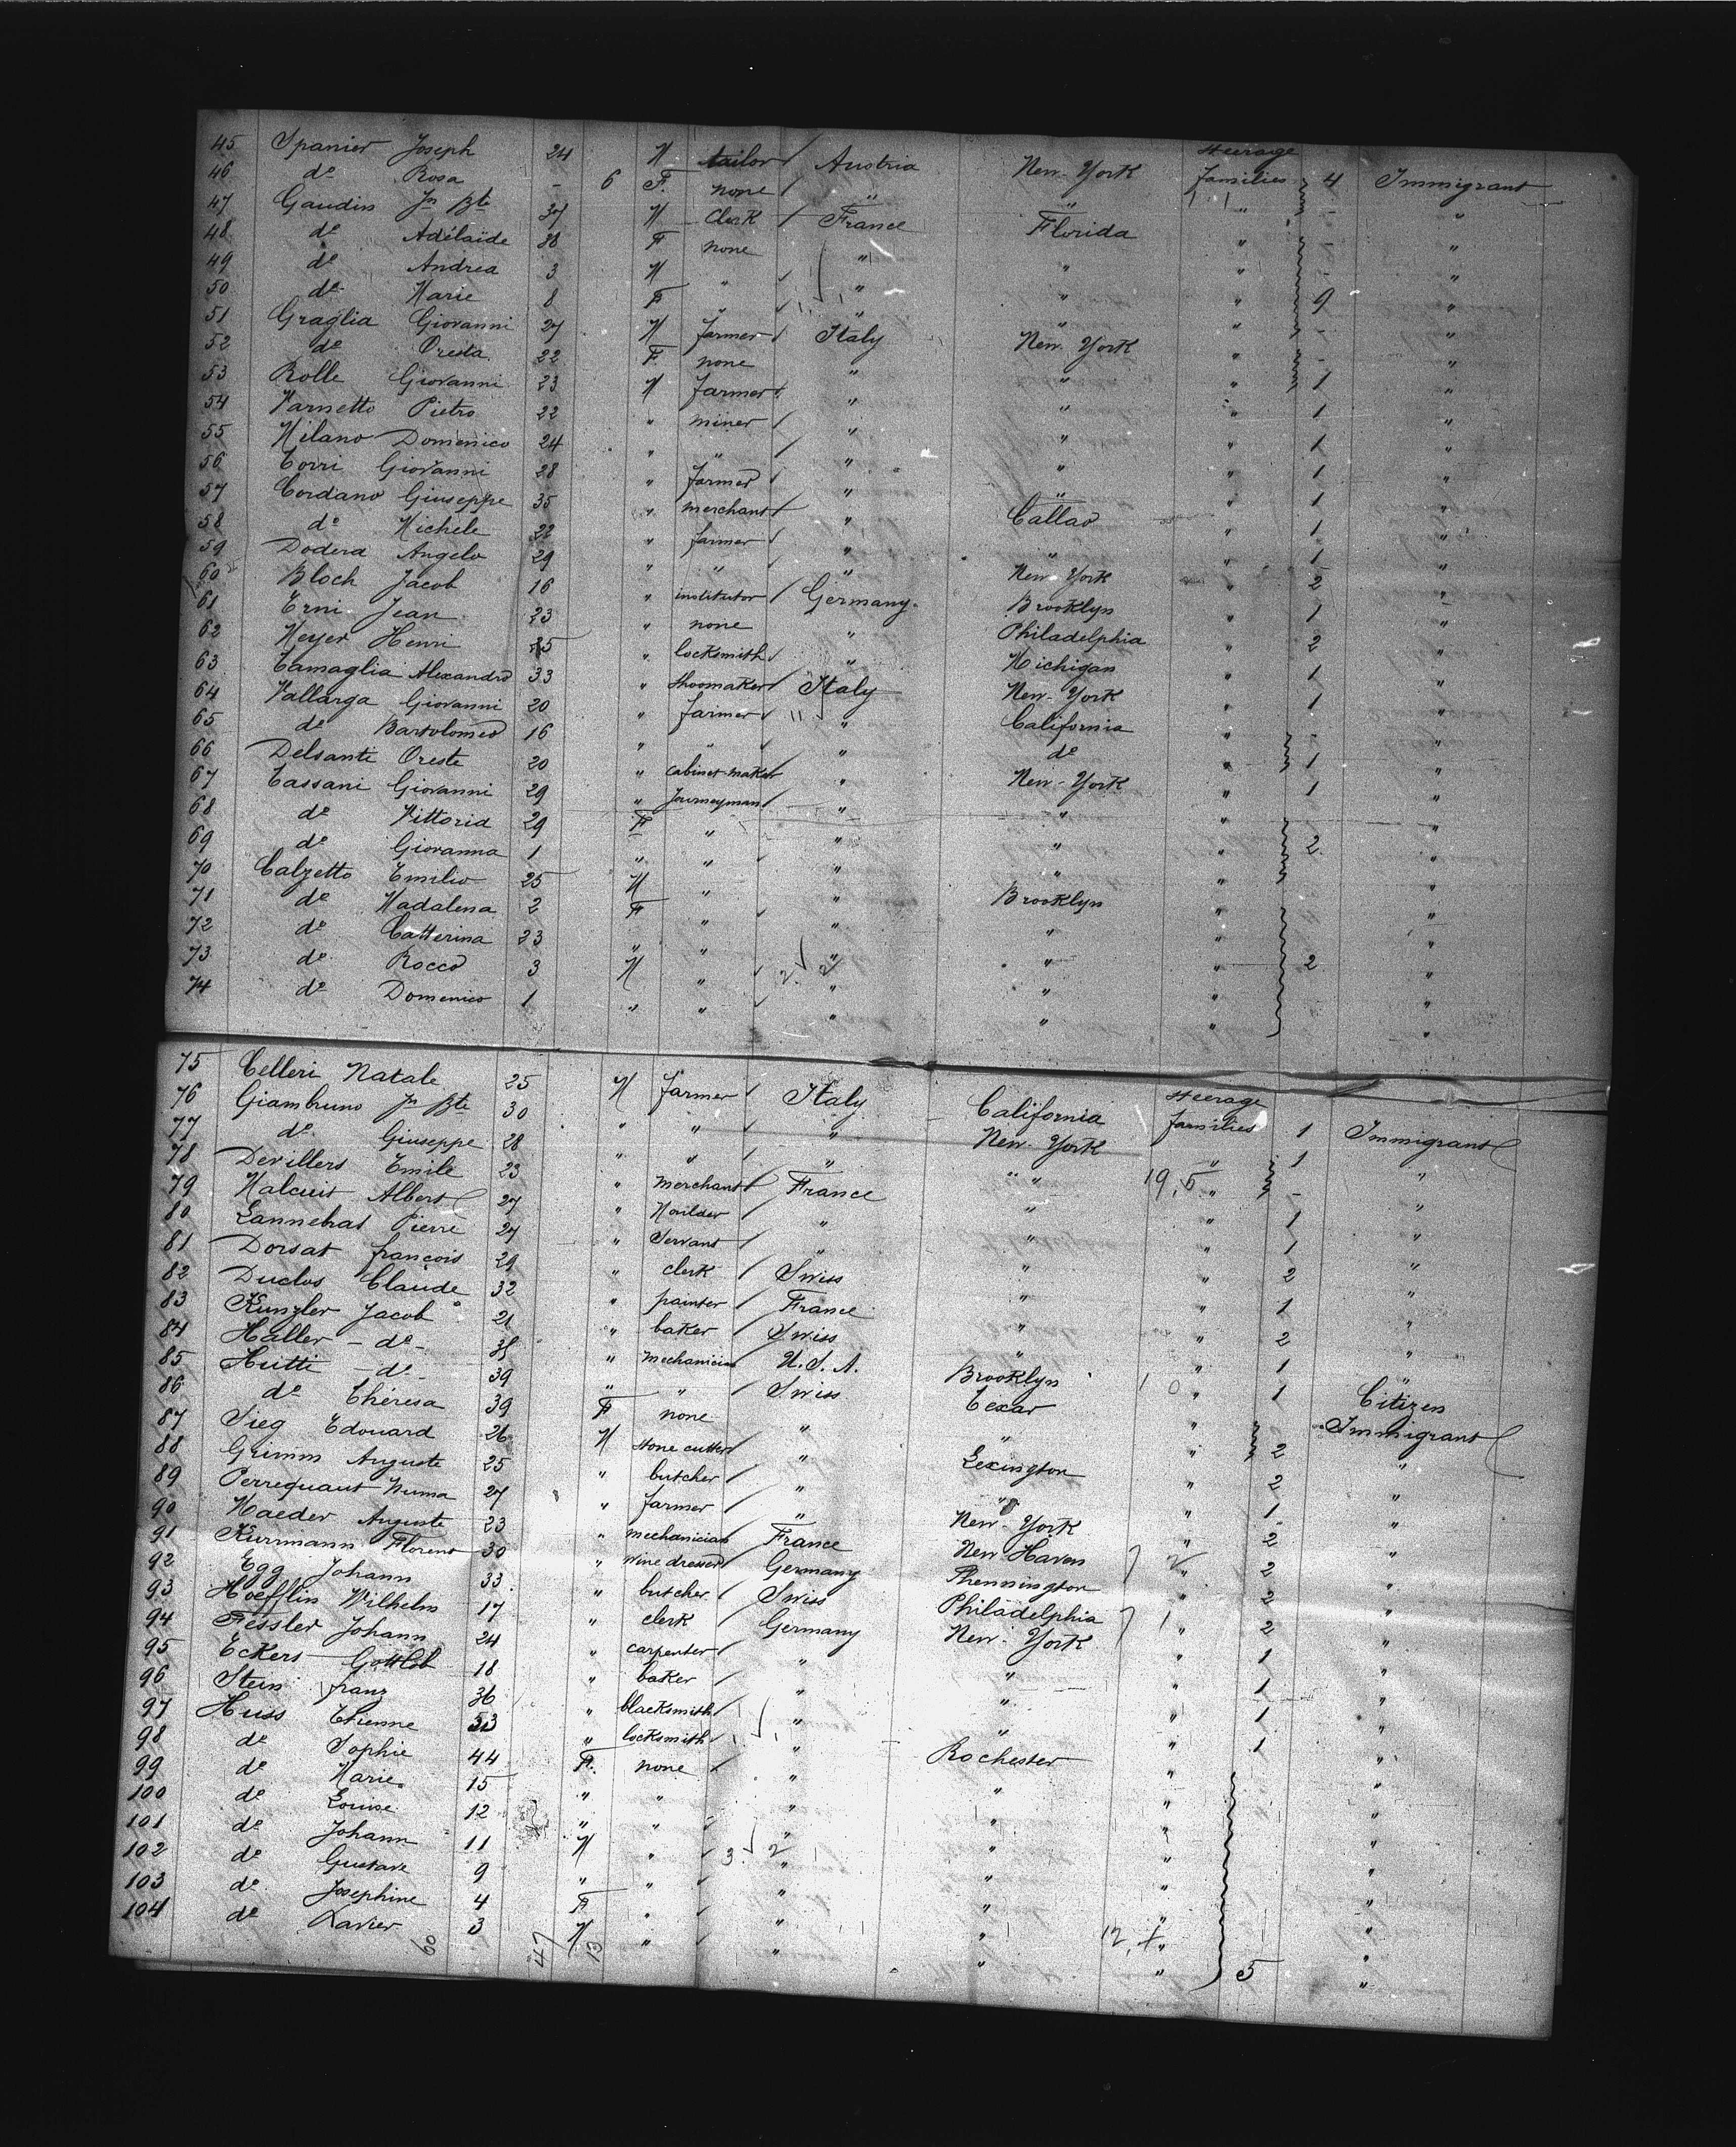 45 Spanier Joseph 24 M tailor Austria New-York Steerage families 4 Immigrant
46 do Rosa - 6 F. none " " " - "
47 Gaudin Jn Bte 37 M Clerk France Florida " - "
48 do Adélaïde 38 F none " " " - "
49 do Andrea 3 M " " " " 9 "
50 do Marie 8 F " " " " - "
51 Graglia Giovanni 27 M farmer Italy New-York " - "
52 do Oresta 22 F. none " " " 1 "
53 Rolle Giovanni 23 M farmer " " " 1 "
54 Varnetto Pietro 22 " miner " " " 1 "
55 Milano Domenico 24 " " " " " 1 "
56 Torri Giovanni 28 " farmer " " " 1 "
57 Cordano Giuseppe 35 " merchant " Callao " 1 "
58 do Michele 22 " farmer " " " 1 "
59 Dodera Angelo 29 " " " New-York " 2 "
60 Bloch Jacob 16 " institutor Germany. Brooklyn " 1 "
61 Erni Jean 23 " none " Philadelphia " 2 "
62 Meyer Henri " locksmith " Michigan " 1 "
63 Camaglia Alexandro 33 " shoomaker Italy New-York " 1 "
64 Vallarga Giovanni 20 " farmer " California " "
65 do Bartolomeo 16 " " " do " 1 "
66 Delsante Oreste 20 " cabinet-maker " New-York " 1 "
67 Cassani Giovanni 29 " Journeyman " " " "
68 do Vittoria 29 F " " " " 2 "
69 do Giovanna 1 " " " " " "
70 Calzetto Emilio 25 M " " Brooklyn " "
71 do Madalena 2 F " " " " "
72 do Catterina 23 " " " " " 2 "
73 do Rocco 3 M " " " " "
74 do Domenico 1 " " " " " "
75 Celleri Natale 25 M farmer Italy California Steerage families 1 Immigrant
76 Giambruno Jn Bte 30 " " " New-York " 1 "
77 do Giuseppe 28 " " " " 19,5 " - "
78 Devillers Emile 23 " merchant France " " 1 "
79 Malcuit Albert 27 " " " " 1 "
80 Lannebras Pierre 27 " Servant " " " 2 "
81 Dorsat françois 29 " clerk Swiss " " 1 "
82 Duclos Claude 32 " painter France " " 2 "
83 Kunzler Jacob 21 " baker Swiss " " 1 "
84 Haller - do - " mechanician U.S.A. Brooklyn " 1 Citizen
85 Hutti - do - 39 " " Swiss Texas " Immigrant
86 do Théresa 39 F none " " " 2 "
87 Sieg Edouard 26 M stone cutter " Lexington " 2 "
88 Grimm Auguste 25 " butcher " " " 1 "
89 Perrequaut Numa 27 " farmer " New-York " 2 "
90 Maeder Auguste 23 " mechanician France New Haven " 2 "
91 Kurmann Florens 30 " wine dresser Germany Phennington " 2 "
92 Egg Johann 33 " butcher Swiss Philadelphia " 2 "
93 Hoefflin Wilhelm 17 " clerk Germany New-York " 1 "
94 Fessler Johann 24 " carpenter " " " 1 "
95 Eckers Gottlob 18 " baker " " " 1 "
96 Stein franz 36 " blacksmith " " " 1 "
97 Huss Etienne 53 " locksmith " Rochester " "
98 do Sophie 44 F. none " " " "
99 do Marie 15 " " " " " "
100 do Louise 12 " " " " " "
101 do Johann 11 M " " " " "
102 do Gustave 9 " " " " " "
103 do Josephine 4 F " " " " "
104 do Xavier 3 M " " " " 5 "
60 47 13